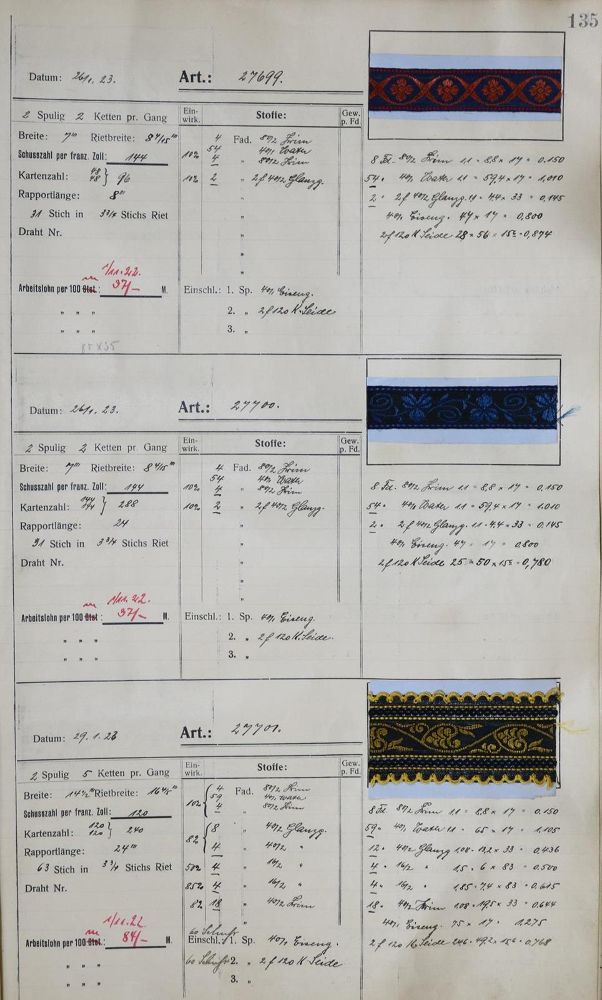 135
Datum: 26/1. 23. Art.: 27699.
2 Spulig 2 Ketten pr. Gang
Ein-wirk. Stoffe: Gew. p. Fd.
Breite: 7''' Rietbreite: 8 4/15'''
Schusszahl per franz. Zoll: 144
Kartenzahl: 48 48 } 96
Rapportlänge: 8'''
31 Stich in 3 3/4 Stichs Riet
Draht Nr.
4 Fad. 80/2
10% 54 " 40/1 Water
4 " 80/2
10% 2 " 2f 40/2 Glanzg.
1/11.22.
m
Arbeitslohn per 100 Stst.: 37/– M.
Einschl.: 1. Sp. 40/1 Eiseng.
2. " 2f 120 K. Seide
3. "
8 Fd. 80/2 11 = 8,8 × 17 = 0.150
54 " 40/1 Water 11 = 59,4 × 17 = 1,010
2 " 2f 40/2 Glanzg. 11 = 4,4 × 33 = 0,145
40/1 Eiseng. 47 × 17 = 0,800
2f 120 K Seide 28 = 56 × 156 = 0,874
Datum: 26/1. 23. Art.: 27700.
2 Spulig 2 Ketten pr. Gang
Ein-wirk. Stoffe: Gew. p. Fd.
Breite: 7''' Rietbreite: 8 4/15'''
Schusszahl per franz. Zoll: 144
Kartenzahl: 144 144 } 288
Rapportlänge: 24
31 Stich in 3 3/4 Stichs Riet
Draht Nr.
4 Fad. 80/2
10% 54 " 40/1 Water
4 " 80/2
10% 2 " 2f 40/2 Glanzg.
1/11.22.
m
Arbeitslohn per 100 Stst: 37/– M.
Einschl.: 1. Sp. 40/1 Eiseng.
2. " 2f 120 K. Seide.
3. "
8 Fd. 80/2 11 = 8,8 × 17 = 0.150
54 " 40/1 Water 11 = 59,4 × 17 = 1.010
2 " 2f 40/2 Glanzg. 11 = 4,4 × 33 = 0.145
40/1 Eiseng. 47 = 17 = 0,800
2f 120 K Seide 25 = 50 × 156 = 0,780
Datum: 29.1.23 Art.: 27701.
2 Spulig 5 Ketten pr. Gang
Ein-wirk. Stoffe: Gew. p. Fd.
Breite: 14 1/2''' Rietbreite: 16 4/5'''
Schusszahl per franz. Zoll: 120
Kartenzahl: 120 120 } 240
Rapportlänge: 24'''
63 Stich in 3 3/4 Stichs Riet
Draht Nr.
4 Fad. 80/2
10% 59 " 40/1 Water
4 " 80/2
8% 8 " 40/2 Glanzg
4 " 40/2 "
50% 4 " 16/2 "
85% 4 " 16/2 "
8% 18 " 40/2
1/11.22
m
Arbeitslohn per 100 Stst.: 84/– M.
60 Schuss
Einschl.: 1. Sp. 40/1 Eiseng.
60 Schuss 2. " 2f 120 K Seide
3. "
8 Fd. 80/2 11 = 8,8 × 17 = 0.150
59 " 40/1 Water 11 = 65 × 17 = 1.105
12 " 40/2 Glanzg 108 = 13,2 × 33 = 0,436
4 " 16/2 " 15 = 6 × 83 = 0.500
4 " 16/2 " 185 = 7,4 × 83 = 0,615
18 " 40/2 108 = 19,5 × 33 = 0,644
40/1 Eiseng. 75 × 17 = 1,275
2f 120 K Seide 246 = 492 × 156 = 0,768